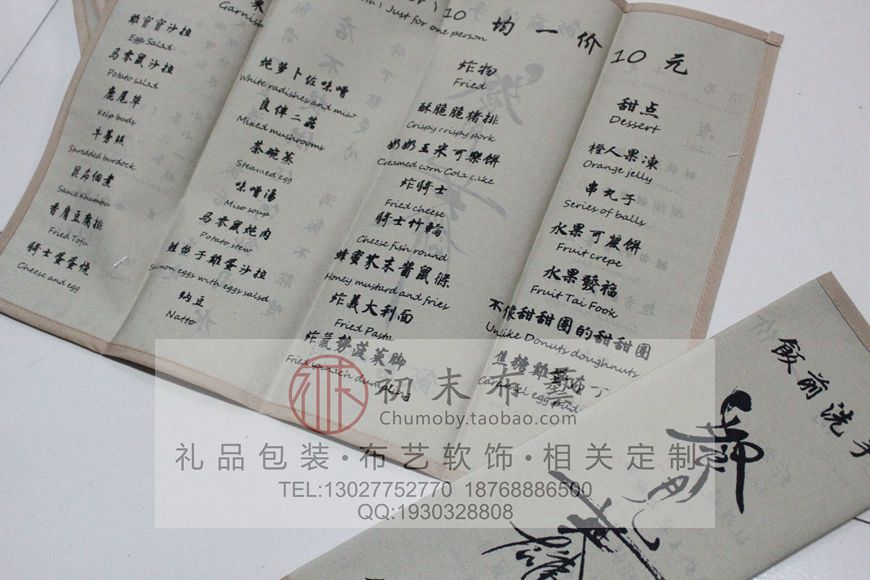 Garnish
雞寶寶沙拉
Egg Salad
馬零鼠沙拉
Potato salad
鹿尾草
Kelp buds
牛蒡絲
Shredded burdock
昆布佃煮
Samit Khumbu
香膚豆腐排
Fried Tofu
騎士蛋蛋燒
Cheese and egg
炖萝卜佐味噌
White radishes and miso
良伴二菇
Mixed mushrooms
茶碗蒸
Steamed egg
味噌湯
Miso soup
馬零鼠炖肉
Potato stew
鮭魚子雞蛋沙拉
Salmon eggs with eggs salad
納豆
Natto
10 均一价 10 元
) Just for one person
炸物
Fried
酥脆脆豬排
Crispy crispy pork
奶奶玉米可樂餅
Creamed corn Cola cake
炸騎士
Fried cheese
騎士竹輪
Cheese fish round
蜂蜜芥末薯鼠條
Honey mustard and fries
炸義大利面
Fried Pasta
Fried spinach dumpling
甜点
Dessert
橙人果凍
Orange jelly
串丸子
Series of balls
水果可麗餅
Fruit crepe
水果發福
Fruit Tai Fook
不像甜甜圈的甜甜圈
Unlike Donuts doughnuts
飯前洗手
初末布藝
Chumoby.taobao.com
礼品包装·布艺软饰·相关定制
TEL:13027752770 18768886500
QQ:1930328808